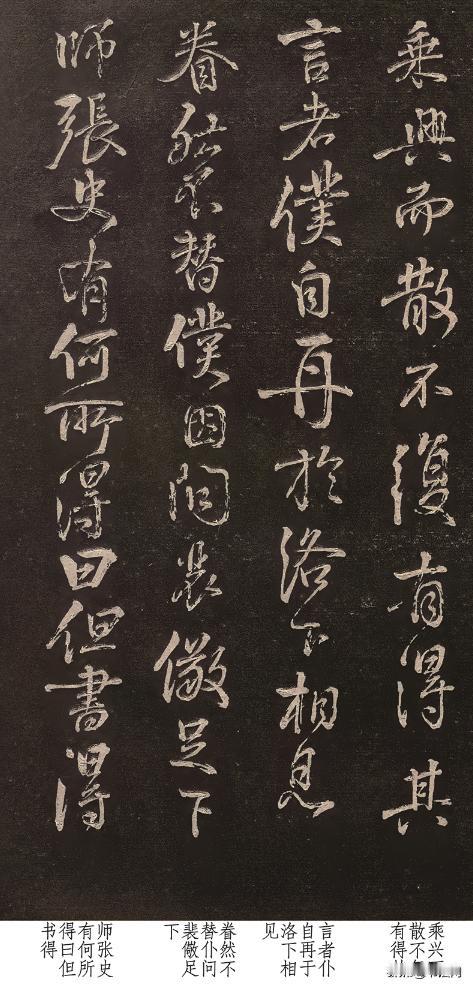 乘興而散不復有得其
言者僕自再於洛下相見
眷然不替僕因問裴儆足下
師張史有何所得曰但書得
乘兴
散不
有得
言者仆
自再于
洛下相
见
眷然不
替仆问
裴儆足
下
师张史
有何所
得曰但
书得